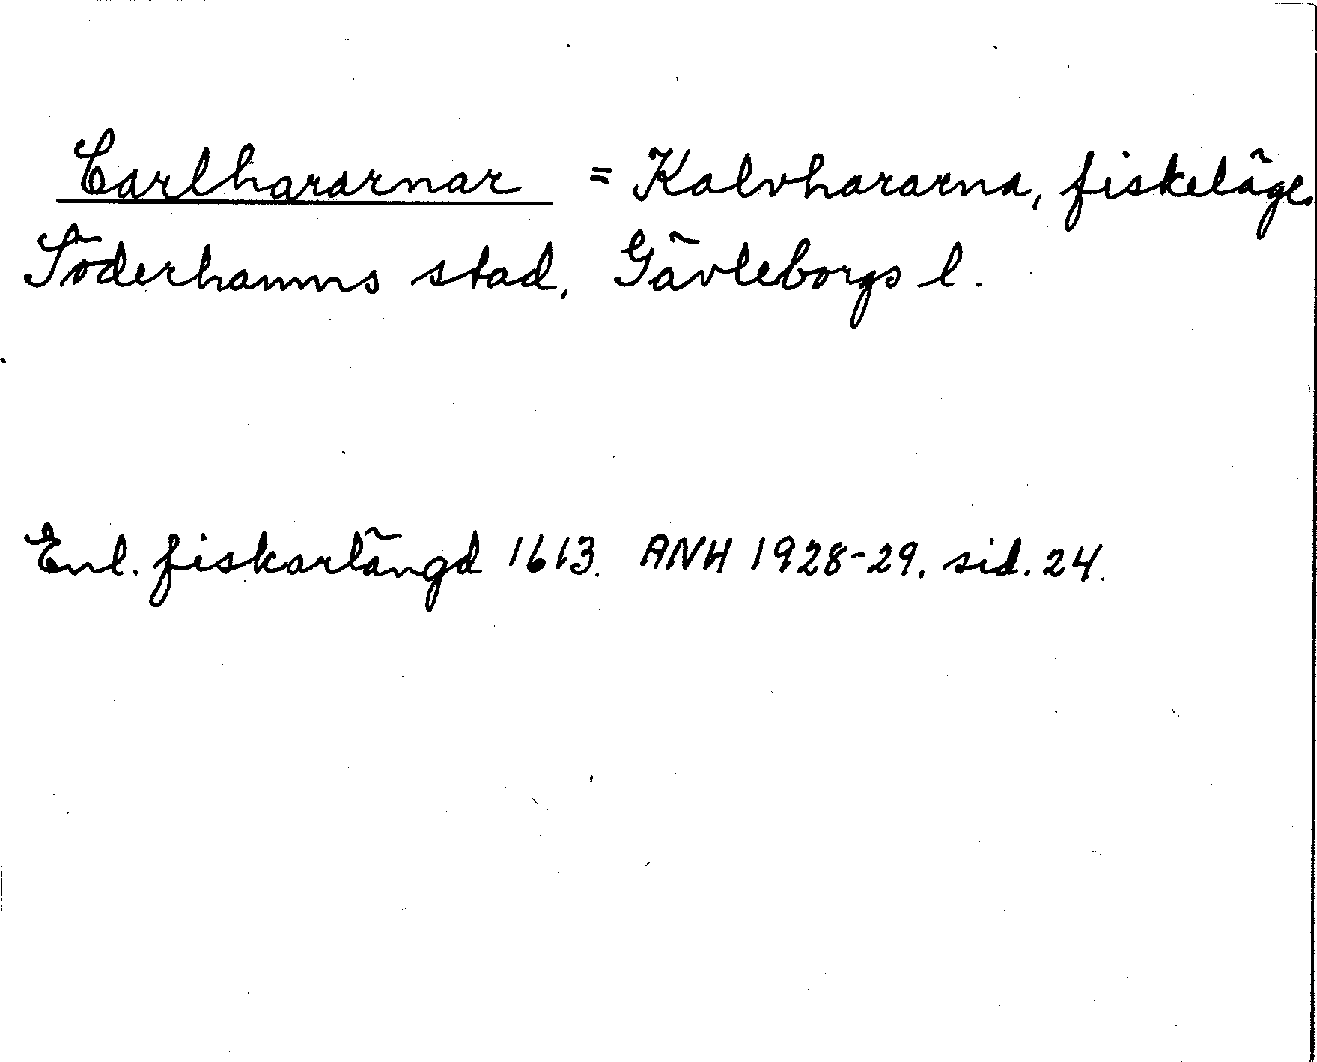 Carlhararnar = Kalvhararna, fiskeläge
Söderhamns stad, Gävleborgs l.
Enl. fiskarlängd 1613. ANH 1928-29, sid. 24.